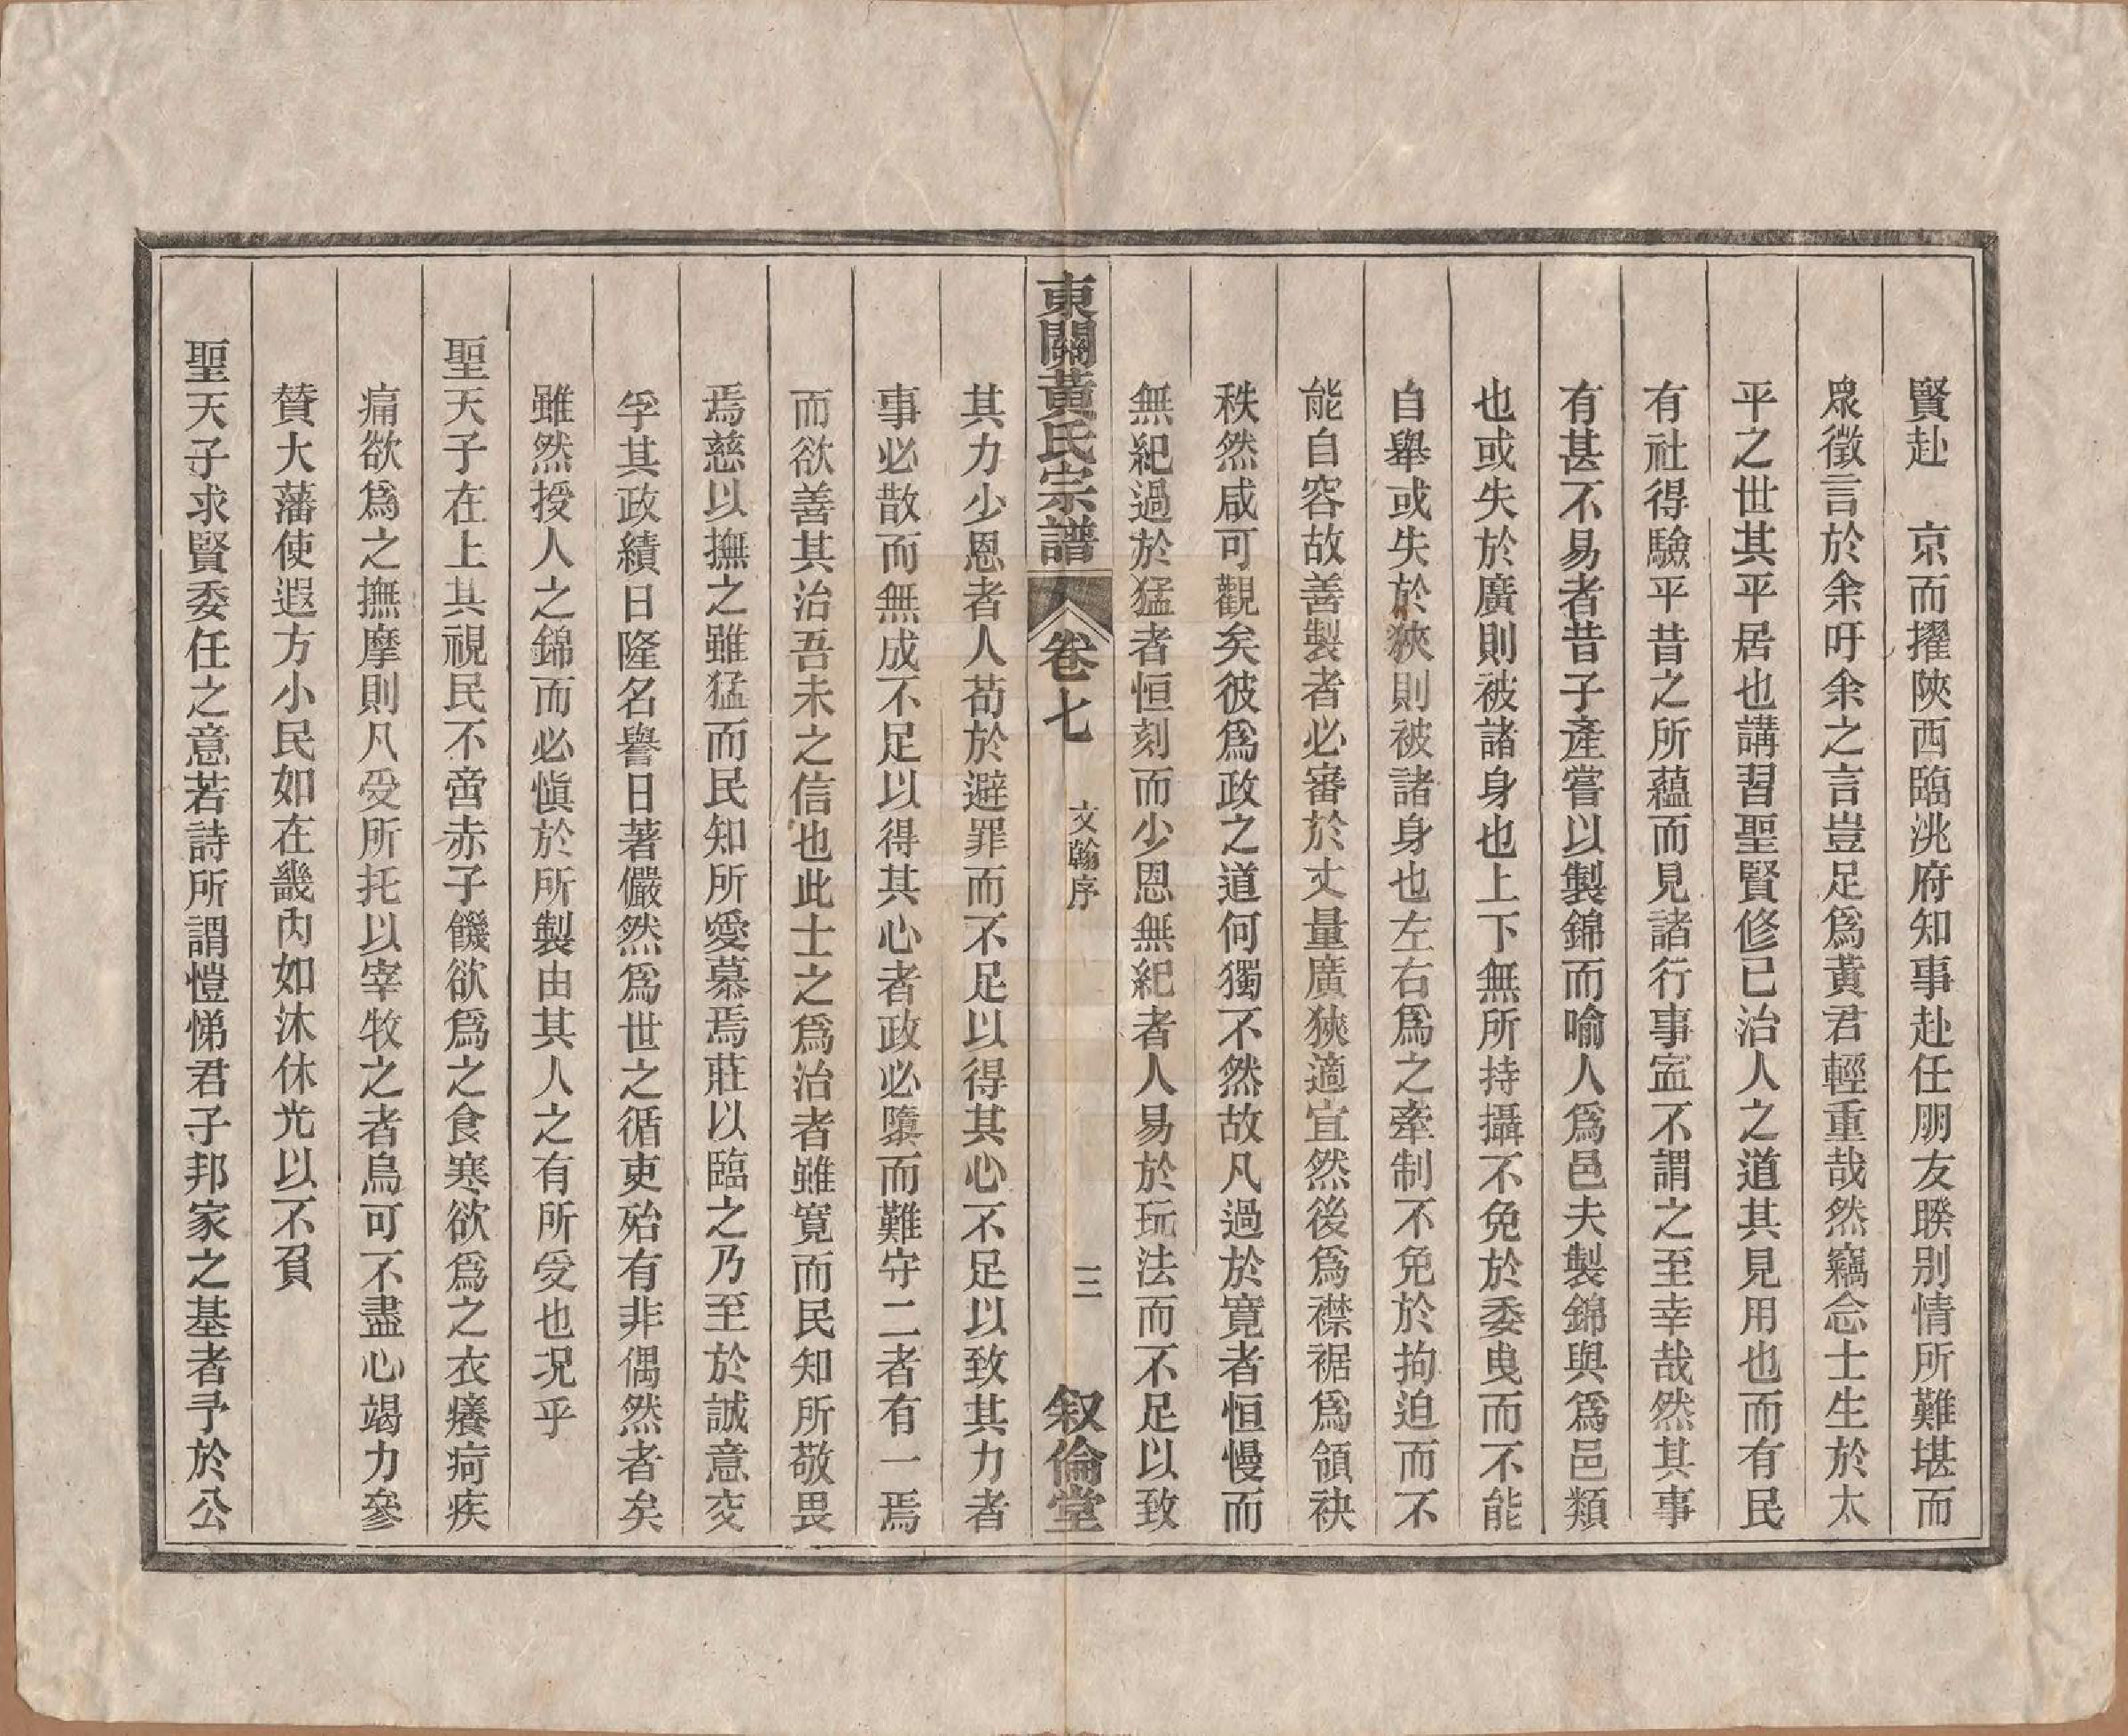 賢赴　京而擢陝西臨洮府知事赴任朋友睽别情所難堪而
衆徵言於余吁余之言豈足爲黃君輕重哉然竊念士生於太
平之世其平居也講習聖賢修已治人之道其見用也而有民
有社得驗平昔之所蘊而見諸行事寍不謂之至幸哉然其事
有甚不易者昔子產嘗以製錦而喻人爲邑夫製錦與爲邑類
也或失於廣則被諸身也上下無所持攝不免於委曳而不能
自舉或失於狹則被諸身也左右爲之牽制不免於拘迫而不
能自容故善製者必審於丈量廣狹適宜然後爲襟裾爲領袂
秩然咸可觀矣彼爲政之道何獨不然故凡過於寬者恒慢而
無紀過於猛者恒刻而少恩無紀者人易於玩法而不足以致
東關黃氏宗譜　卷七　文翰序　三　叙倫堂
其力少恩者人苟於避罪而不足以得其心不足以致其力者
事必散而無成不足以得其心者政必隳而難守二者有一焉
而欲善其治吾未之信也此士之爲治者雖寬而民知所敬畏
焉慈以撫之雖猛而民知所愛慕焉莊以臨之乃至於誠意交
孚其政績日隆名譽日著儼然爲世之循吏殆有非偶然者矣
雖然授人之錦而必愼於所製由其人之有所受也况乎
聖天子在上其視民不啻赤子饑欲爲之食寒欲爲之衣癢疴疾
痛欲爲之撫摩則凡受所托以宰牧之者烏可不盡心竭力參
贊大藩使遐方小民如在畿内如沐休光以不負
聖天子求賢委任之意若詩所謂愷悌君子邦家之基者予於公